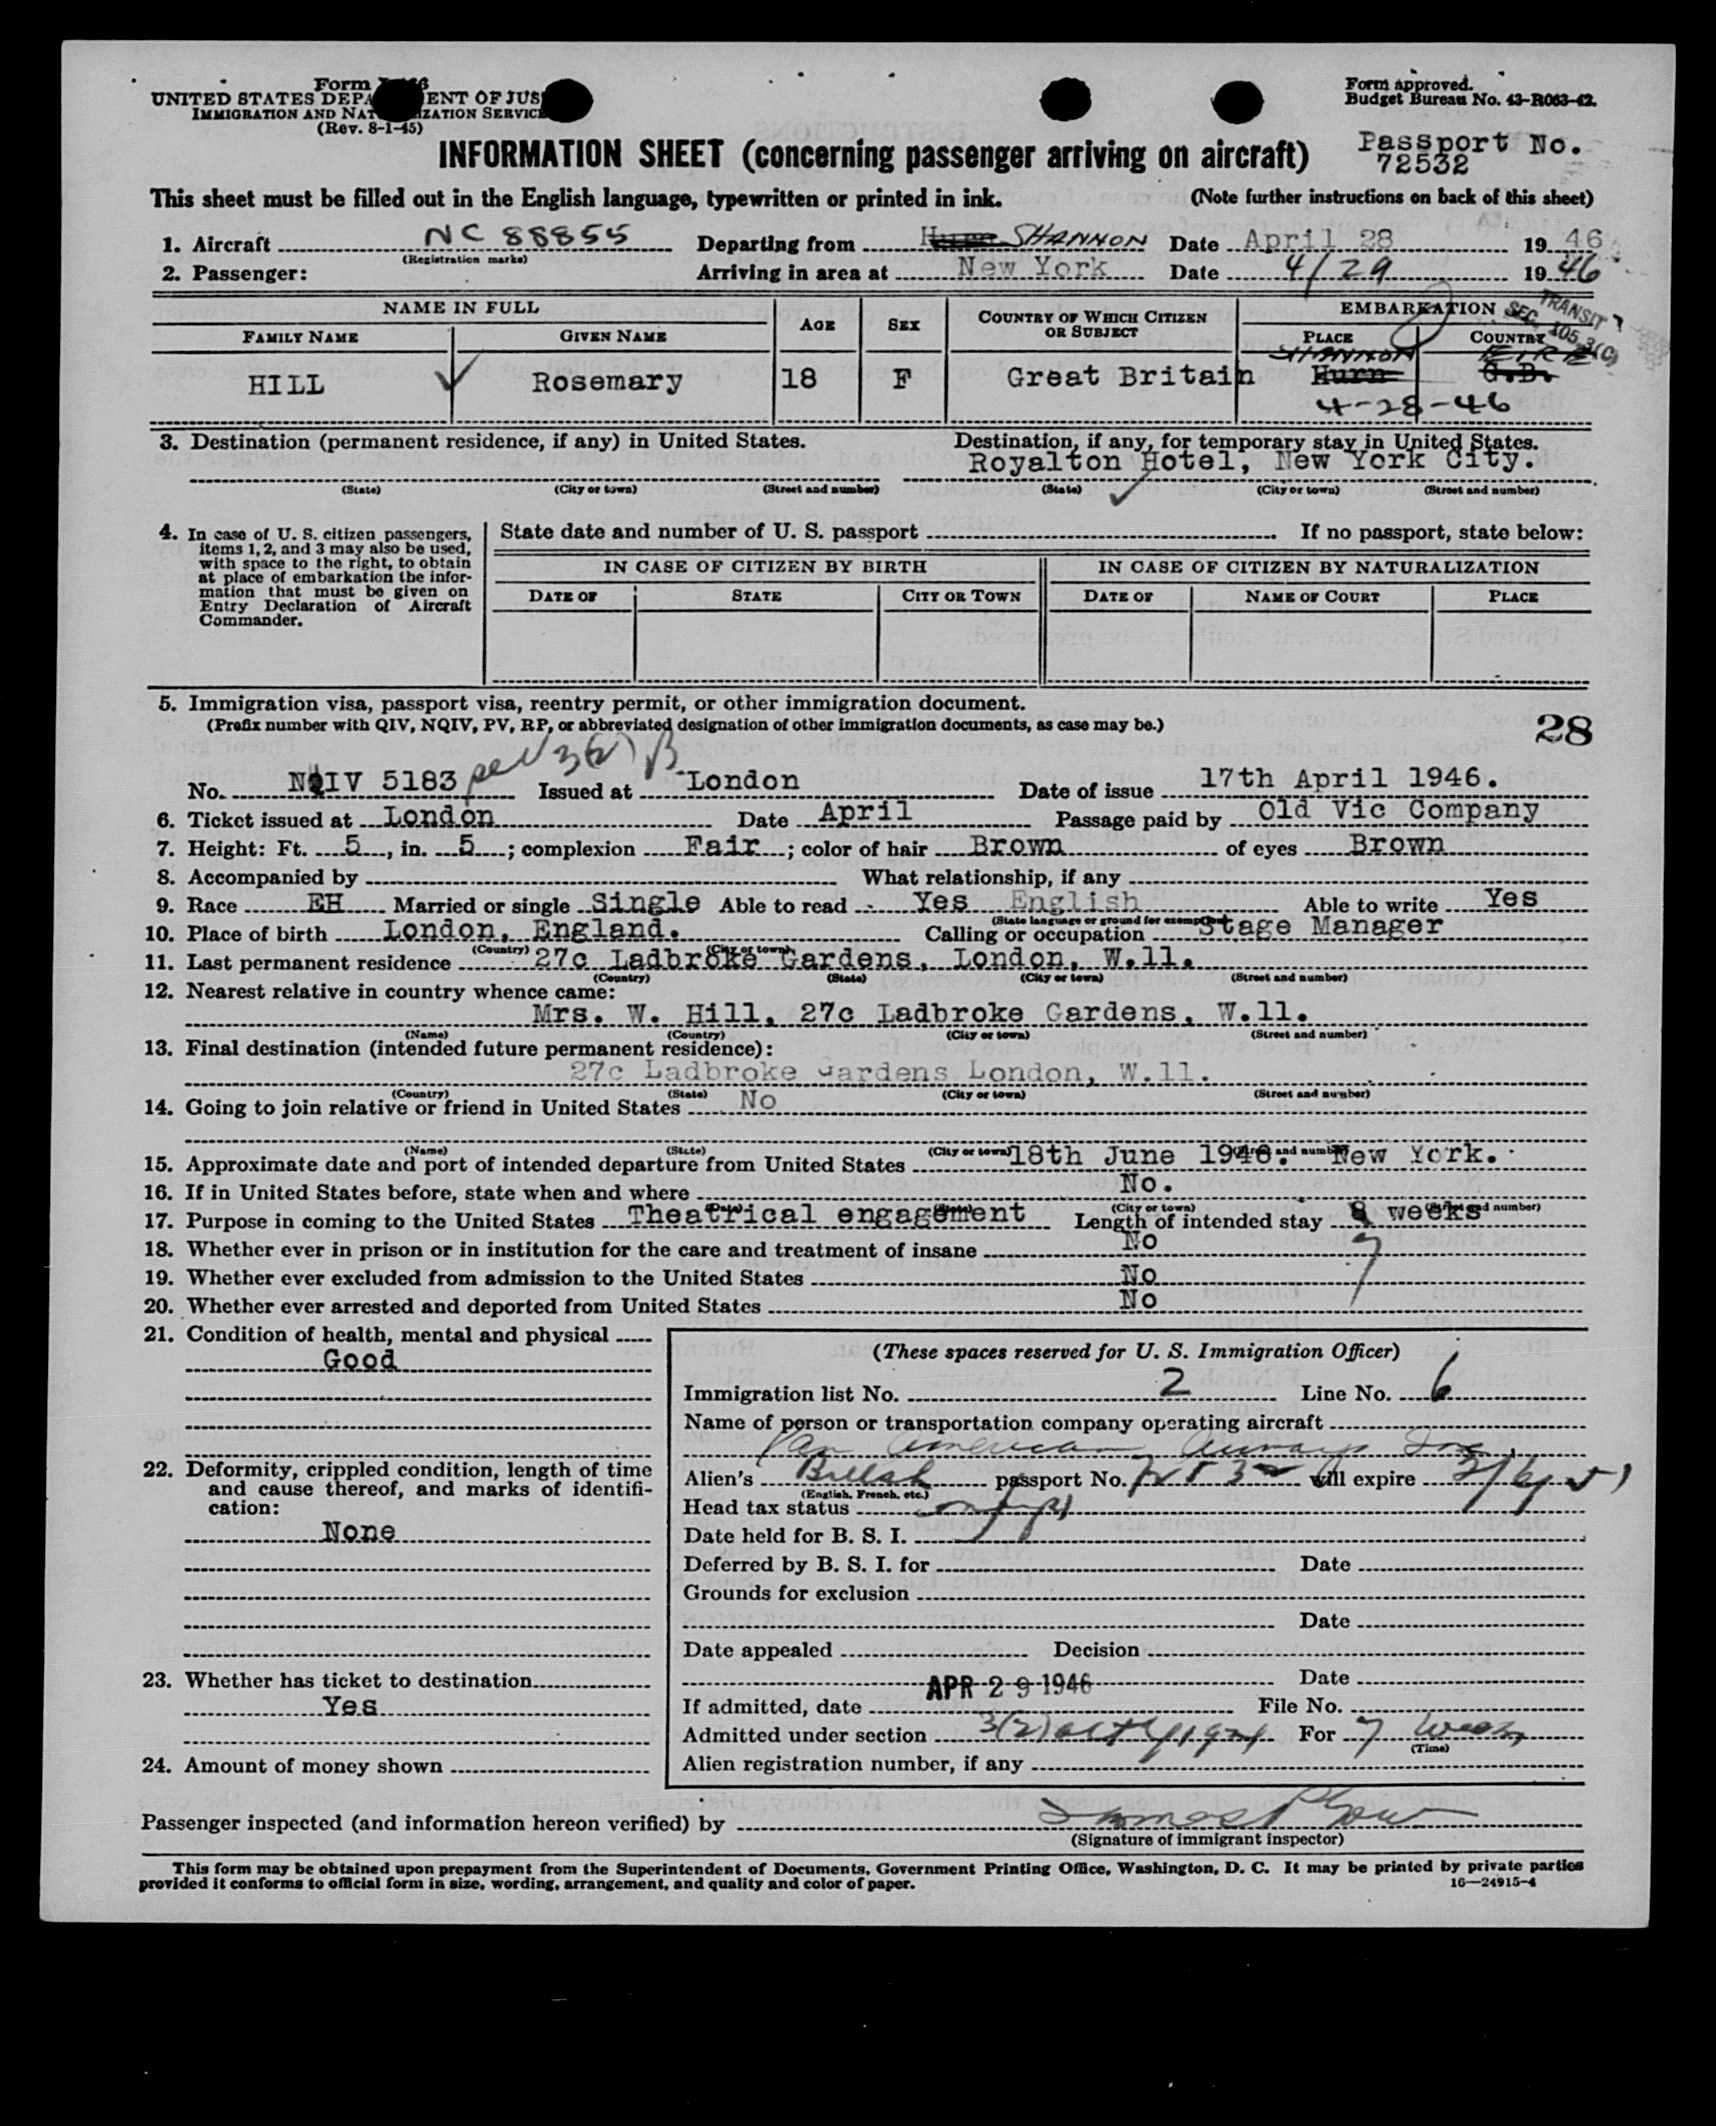 Form
UNITED STATES DEPARTMENT OF JUSTICE
IMMIGRATION AND NATURALIZATION SERVICE
(Rev. 8-1-45)
Form approved.
Budget Bureau No. 43-R063-42.
INFORMATION SHEET (concerning passenger arriving on aircraft)
Passport No.
72532
This sheet must be filled out in the English language, typewritten or printed in ink.
(Note further instructions on back of this sheet)
1. Aircraft NC 88855 Departing from Hurn SHANNON Date April 28 1946
(Registration marks)
2. Passenger: Arriving in area at New York Date 4/29 1946
NAME IN FULL AGE SEX COUNTRY OF WHICH CITIZEN OR SUBJECT EMBARKATION
TRANSIT
SEC. 105.3(C)
FAMILY NAME GIVEN NAME PLACE COUNTRY
SHANNON EIRE
HILL ✓ Rosemary 18 F Great Britain Hurn G.B.
4-28-46
3. Destination (permanent residence, if any) in United States. Destination, if any, for temporary stay in United States.
Royalton Hotel, New York City.
(State) (City or town) (Street and number) (State) ✓ (City or town) (Street and number)
4. In case of U. S. citizen passengers, items 1, 2, and 3 may also be used, with space to the right, to obtain at place of embarkation the information that must be given on Entry Declaration of Aircraft Commander.
State date and number of U. S. passport If no passport, state below:
IN CASE OF CITIZEN BY BIRTH IN CASE OF CITIZEN BY NATURALIZATION
DATE OF STATE CITY OR TOWN DATE OF NAME OF COURT PLACE
5. Immigration visa, passport visa, reentry permit, or other immigration document.
(Prefix number with QIV, NQIV, PV, RP, or abbreviated designation of other immigration documents, as case may be.)
28
No. NQIV 5183 3(2) Issued at London Date of issue 17th April 1946.
6. Ticket issued at London Date April Passage paid by Old Vic Company
7. Height: Ft. 5, in. 5; complexion Fair; color of hair Brown of eyes Brown
8. Accompanied by What relationship, if any
9. Race EH Married or single Single Able to read Yes English Able to write Yes
(State language or ground for exemption)
10. Place of birth London, England. Calling or occupation Stage Manager
(Country) (City or town)
11. Last permanent residence 27c Ladbroke Gardens, London, W.11.
(Country) (State) (City or town) (Street and number)
12. Nearest relative in country whence came:
Mrs. W. Hill, 27c Ladbroke Gardens, W.11.
(Name) (Country) (City or town) (Street and number)
13. Final destination (intended future permanent residence):
27c Ladbroke Gardens London, W.11.
(Country) (State) (City or town) (Street and number)
14. Going to join relative or friend in United States No
(Name) (State) (City or town) (Street and number)
15. Approximate date and port of intended departure from United States 18th June 1946. New York.
16. If in United States before, state when and where No.
(Date) (State) (City or town) (Street and number)
17. Purpose in coming to the United States Theatrical engagement Length of intended stay 8 weeks
7
18. Whether ever in prison or in institution for the care and treatment of insane No
19. Whether ever excluded from admission to the United States No
20. Whether ever arrested and deported from United States No
21. Condition of health, mental and physical
Good
22. Deformity, crippled condition, length of time and cause thereof, and marks of identification:
None
23. Whether has ticket to destination
Yes
24. Amount of money shown
(These spaces reserved for U. S. Immigration Officer)
Immigration list No. 2 Line No. 6
Name of person or transportation company operating aircraft
Pan American Airways Inc.
Alien's British passport No. 72532 will expire
(English, French, etc.)
Head tax status
Date held for B. S. I.
Deferred by B. S. I. for Date
Grounds for exclusion
Date
Date appealed Decision
Date
If admitted, date APR 29 1946 File No.
Admitted under section 3(2) act of 1924 For 7 weeks
(Time)
Alien registration number, if any
Passenger inspected (and information hereon verified) by
(Signature of immigrant inspector)
This form may be obtained upon prepayment from the Superintendent of Documents, Government Printing Office, Washington, D. C. It may be printed by private parties
provided it conforms to official form in size, wording, arrangement, and quality and color of paper.
16—24915-4